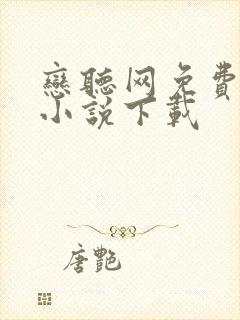 戀聽网免費
小説下載
唐艷